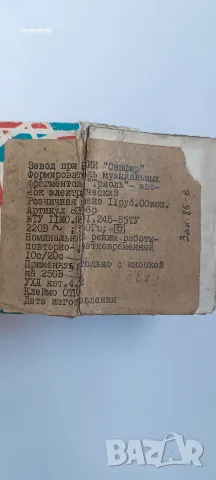 Завод при НИИ "Сапфир"
Формирователь музыкальных
фрагментов "Триоль"- зво-
нок электрический
Розничная цена 11руб.00коп.
Артикул
220В ~ ; 50Гц;
Номинальный режим работы-
повторно-кратковременный
10с/20с
Применять только с кнопкой
на 250В
УХЛ кат.4
Клеймо ОТК
Дата изготовления
Зак 85-
bazar.bg